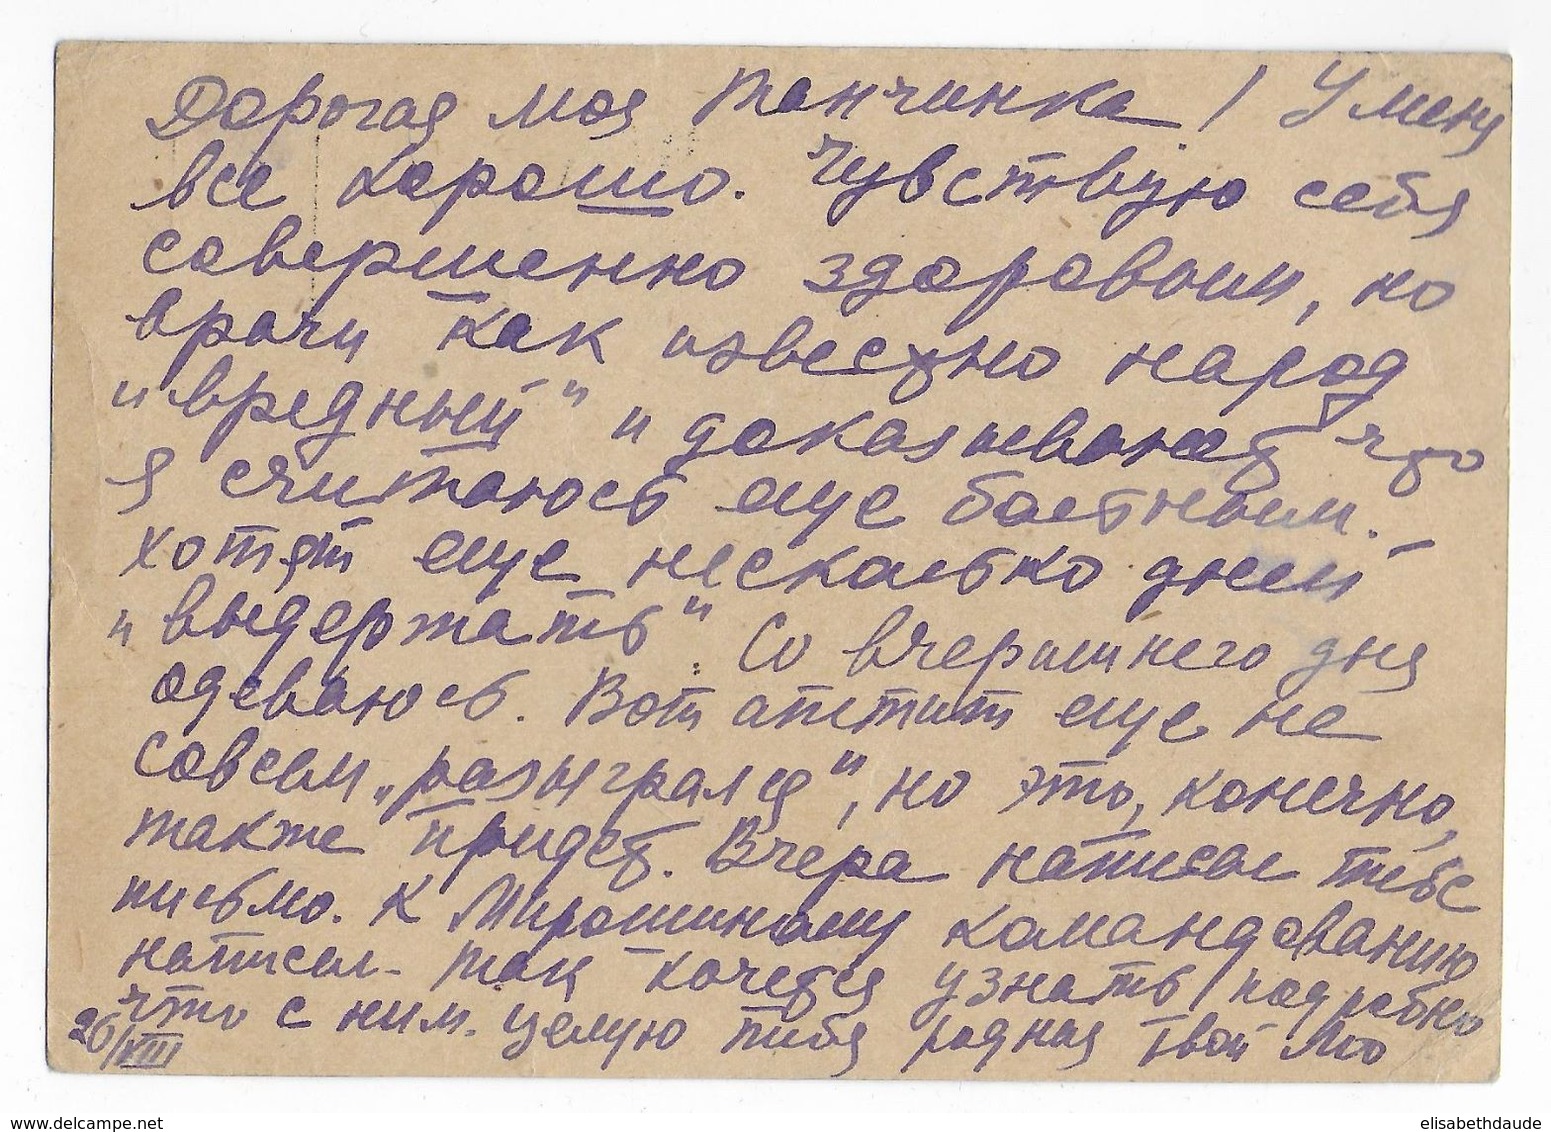 Дорогая моя Танчинка! У меня
все хорошо. Чувствую себя
совершенно здоровым, но
врачи как известно народ
"вредный" и доказывают что
я считаюсь еще больным.
хотят еще несколько дней
"выдержать". Со вчерашнего дня
одеваюсь. Вот аппетит еще не
совсем „разыгрался", но это, конечно,
также придет. Вчера написал тебе
письмо. К Мирошиному командованию
написал. Так хочется узнать подробно
что с ним. Целую тебя родная Твой
26/VIII
www.delcampe.net
elisabethdaude